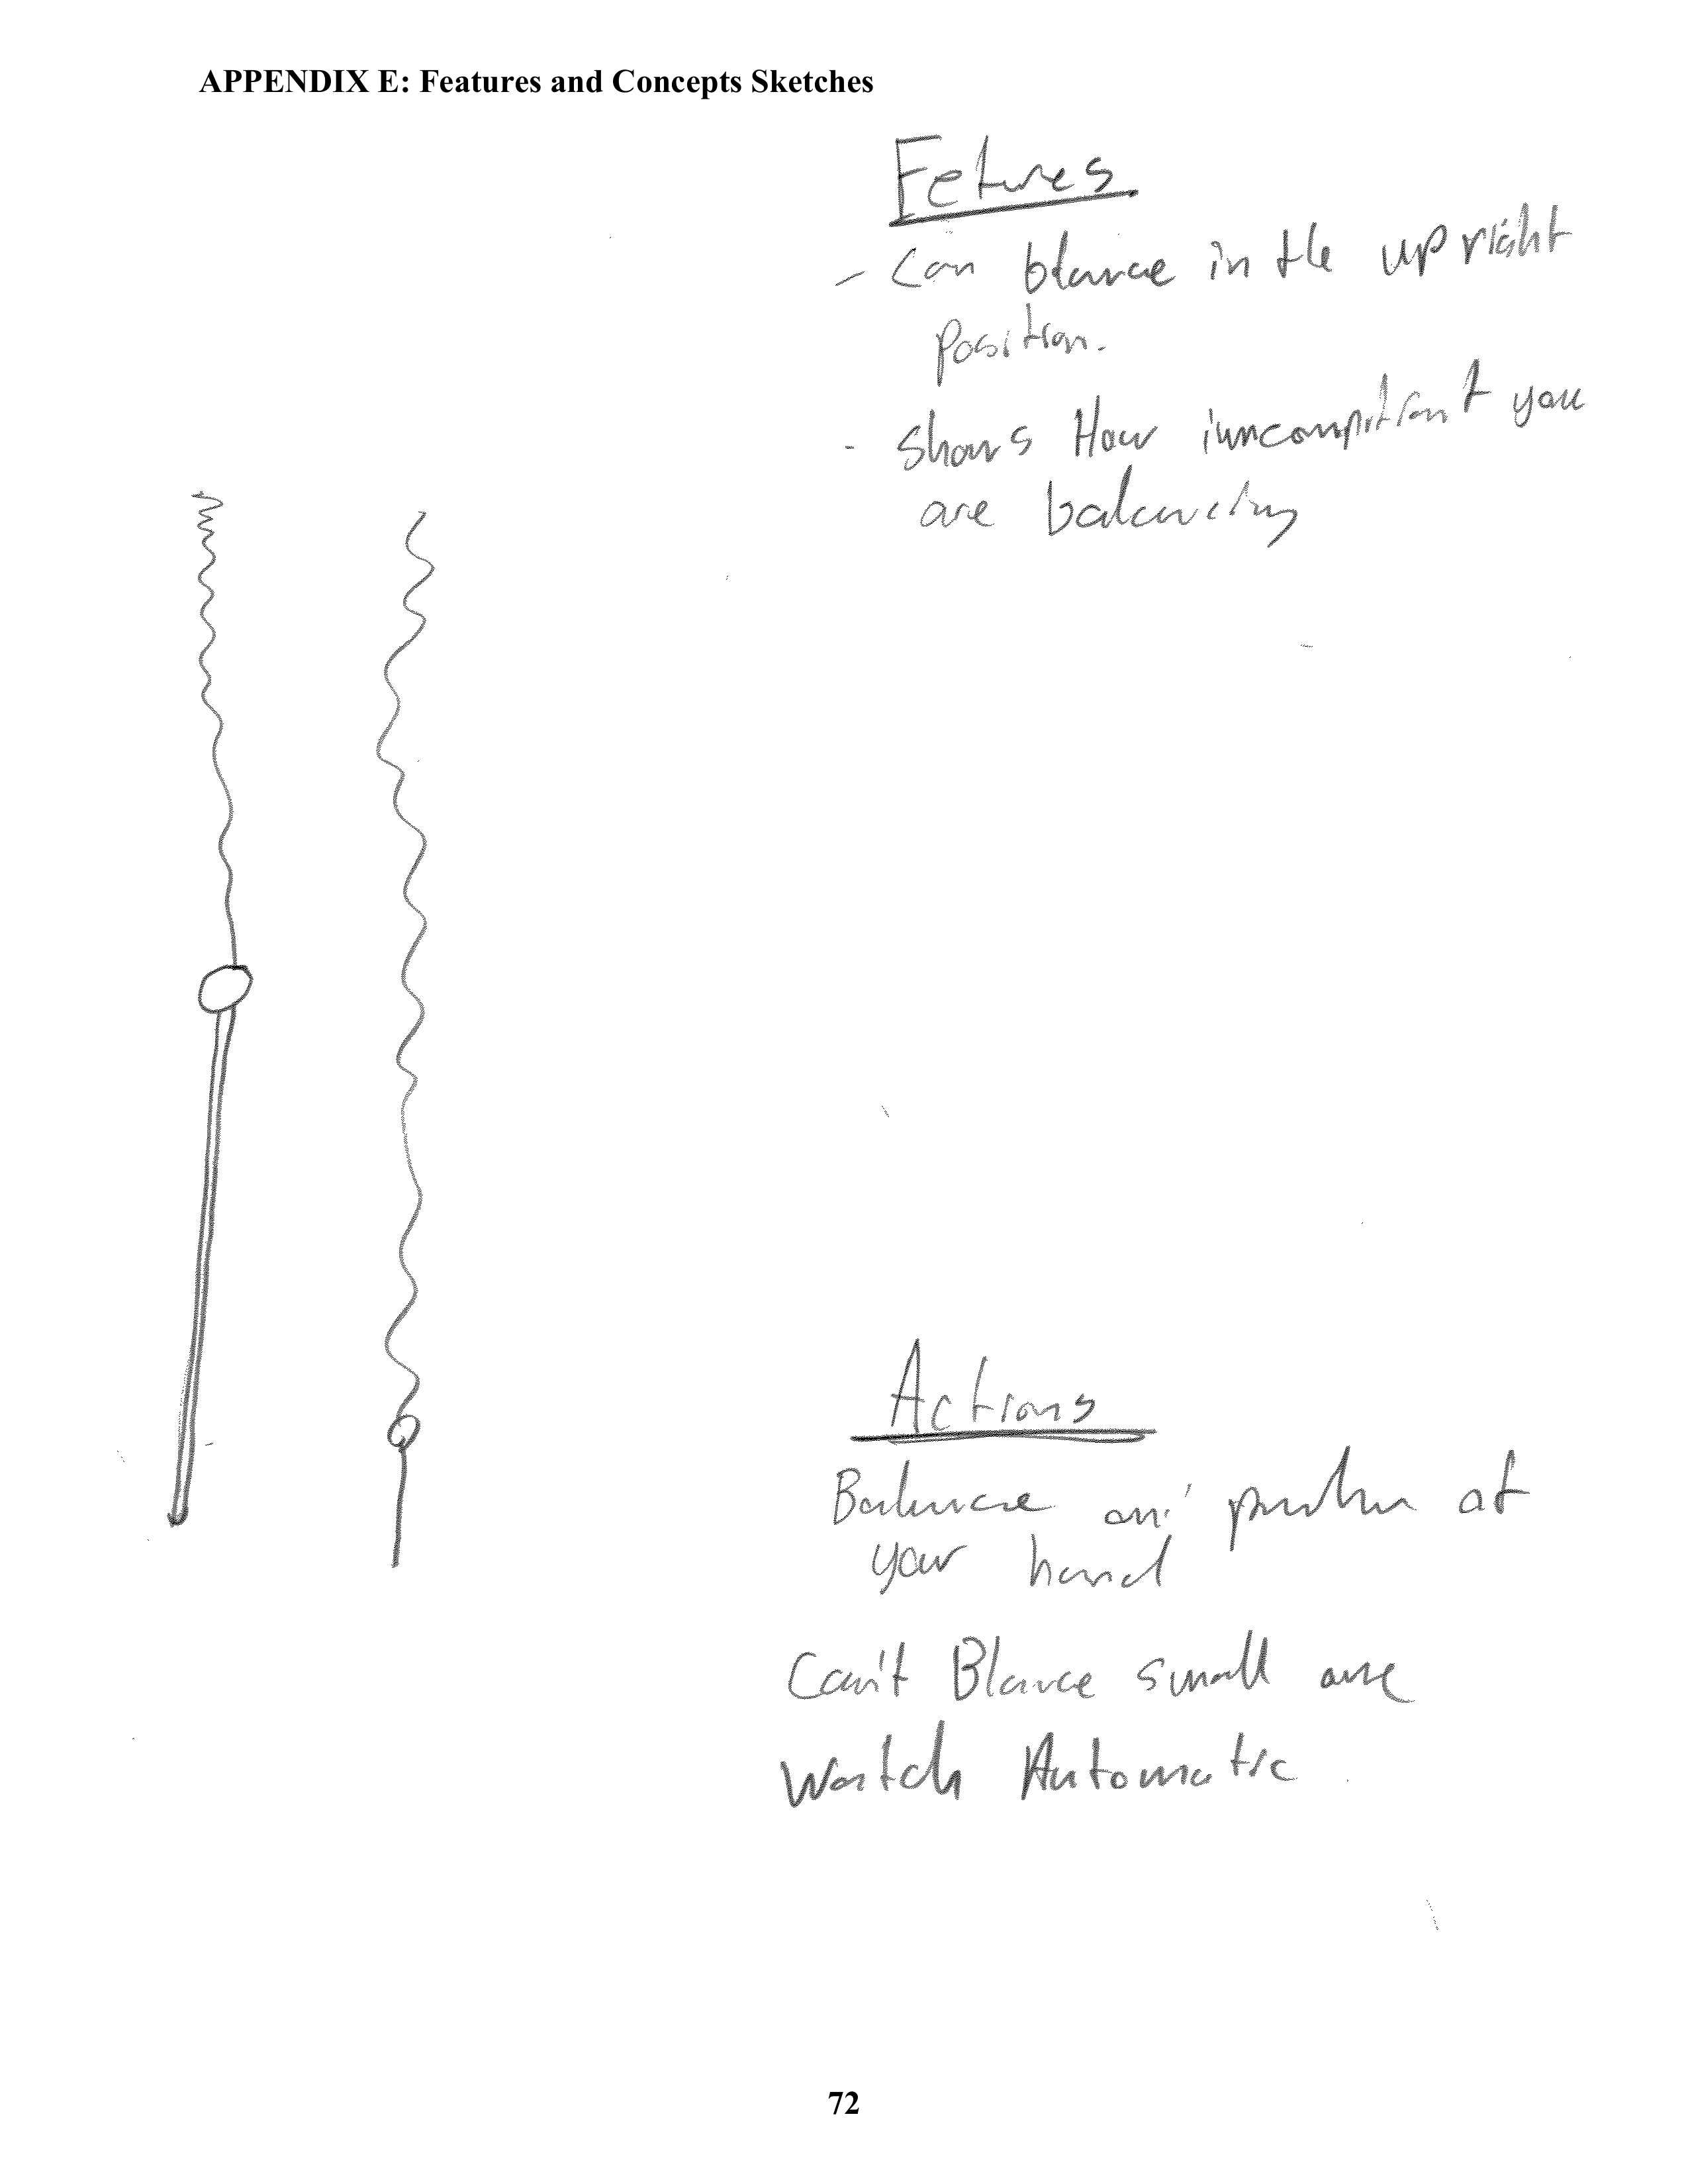 APPENDIX E: Features and Concepts Sketches
Fetures
- Can blance in the upright
position.
- shows How you
are balancing
Actions
Balance on at
your hand
Can't Blance small one
Watch Automatic
72